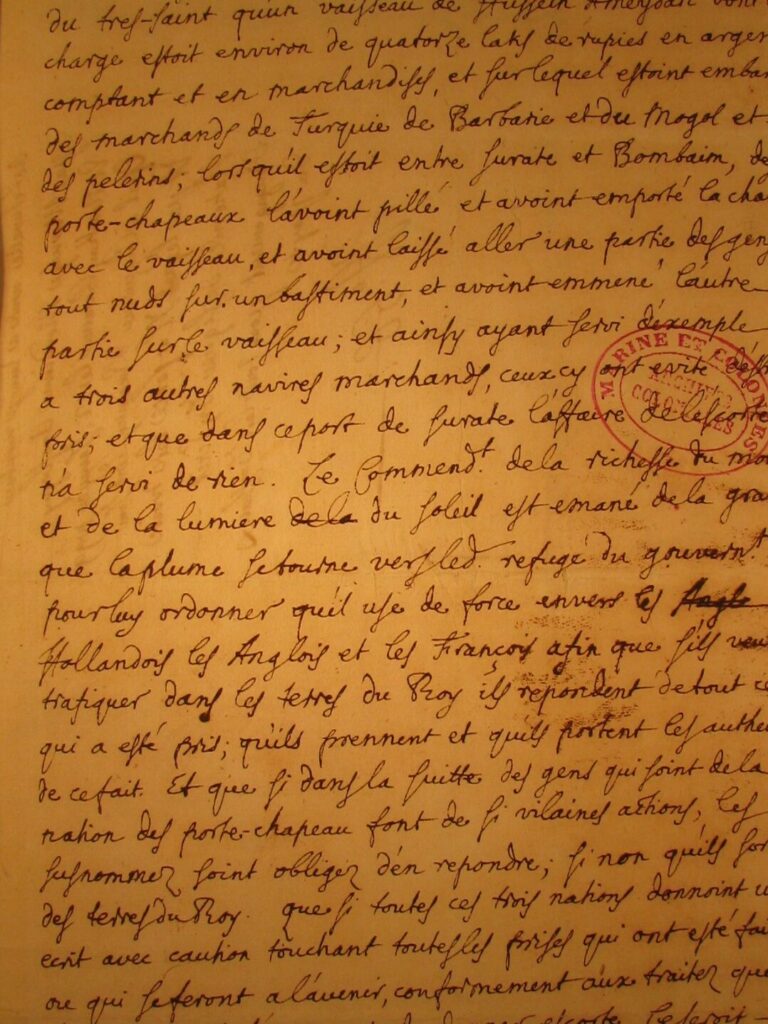 du tres-saint qu'un vaisseau de Hussein
charge estoit environ de quatorze laks de rupies en argen
comptant et en marchandises, et sur lequel estoint embar
des marchands de Turquie de Barbarie et du Mogol et
des pelerins; lors qu'il estoit entre surate et Bombaim, de
porte-chapeaux l'avoint pillé et avoint emporté la cha
avec le vaisseau, et avoint laissé aller une partie des gens
tout nuds sur un bastiment, et avoint emmené l'autre
partie sur le vaisseau; et ainsy ayant servi d'exemple
a trois autres navires marchands, ceux cy ont evité d'est
pris; et que dans ce port de surate l'affaire de l'escorte
n'a servi de rien. Le Commend.t de la richesse du mon
et de la lumiere de la du soleil est emané de la gra
que la plume se tourne vers led. refuge du gouvern.t
pour luy ordonner qu'il use de force envers les Angl
Hollandois les Anglois et les François afin que s'ils veu
trafiquer dans les terres du Roy ils repondent de tout ce
qui a esté pris; qu'ils prennent et qu'ils portent les authe
de ce fait. Et que si dans la suitte des gens qui soint de la
nation des porte-chapeau font de si vilaines actions, les
susnommez soint obligez d'en repondre; si non qu'ils sor
des terres du Roy. que si toutes ces trois nations donnoint u
ecrit avec caution touchant toutes les prises qui ont esté fai
ou qui se feront a l'avenir, conformement aux traitez que
escorte
MARINE ET COLONIES
ARCHIVES
COLONIALES